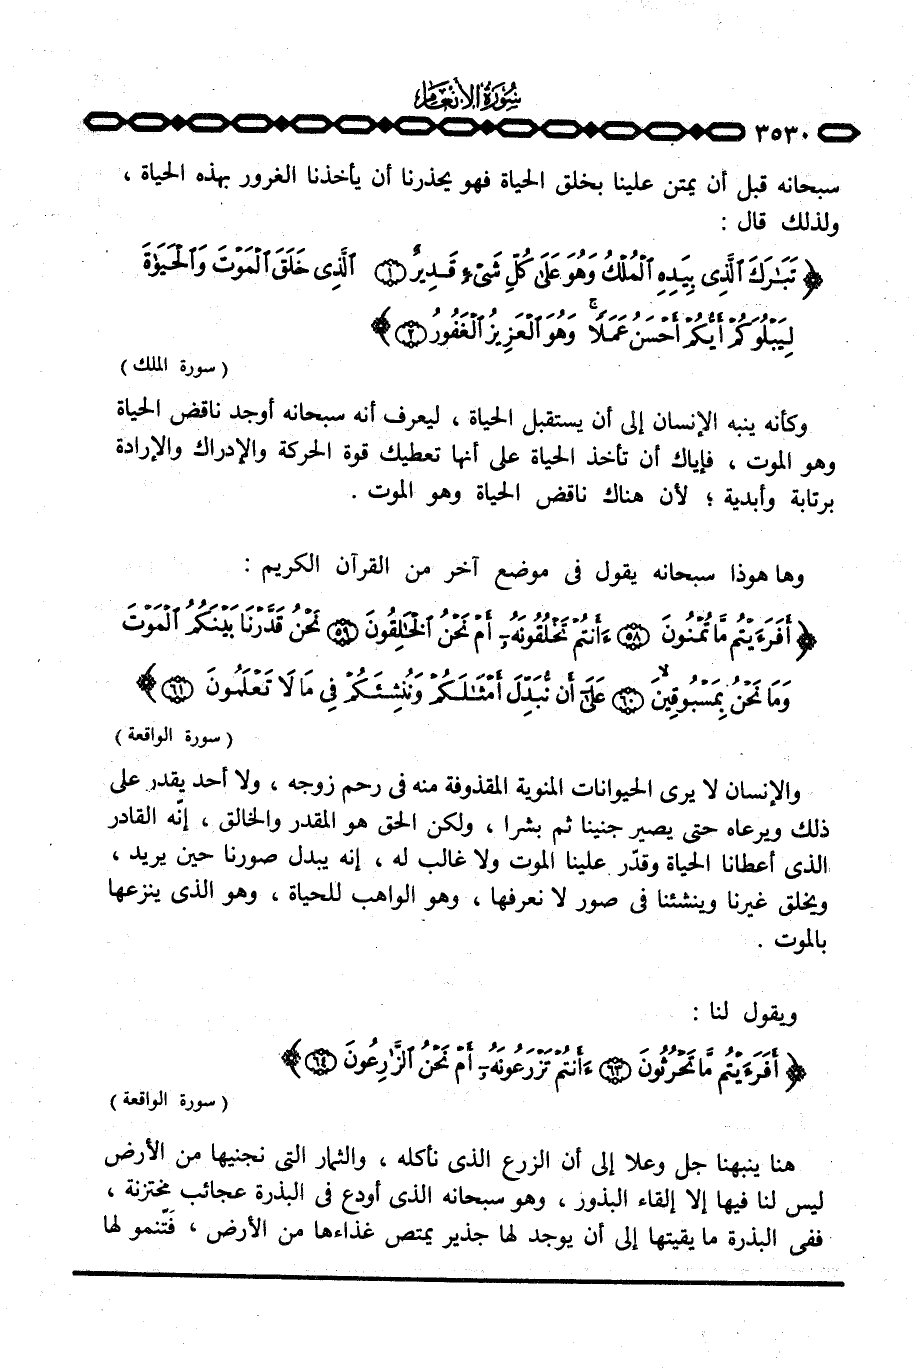 سورة الأنعام
٣٥٣٠
سبحانه قبل أن يمتن علينا بخلق الحياة فهو يحذرنا أن يأخذنا الغرور بهذه الحياة ،
ولذلك قال :
﴿ تَبَٰرَكَ ٱلَّذِى بِيَدِهِ ٱلْمُلْكُ وَهُوَ عَلَىٰ كُلِّ شَىْءٍ قَدِيرٌ ١ ٱلَّذِى خَلَقَ ٱلْمَوْتَ وَٱلْحَيَوٰةَ
لِيَبْلُوَكُمْ أَيُّكُمْ أَحْسَنُ عَمَلًا ۚ وَهُوَ ٱلْعَزِيزُ ٱلْغَفُورُ ٢ ﴾
( سورة الملك )
وكأنه ينبه الإنسان إلى أن يستقبل الحياة ، ليعرف أنه سبحانه أوجد ناقض الحياة
وهو الموت ، فإياك أن تأخذ الحياة على أنها تعطيك قوة الحركة والإدراك والإرادة
برتابة وأبدية ؛ لأن هناك ناقض الحياة وهو الموت .
وها هوذا سبحانه يقول فى موضع آخر من القرآن الكريم :
﴿ أَفَرَءَيْتُم مَّا تُمْنُونَ ٥٨ ءَأَنتُمْ تَخْلُقُونَهُۥٓ أَمْ نَحْنُ ٱلْخَٰلِقُونَ ٥٩ نَحْنُ قَدَّرْنَا بَيْنَكُمُ ٱلْمَوْتَ
وَمَا نَحْنُ بِمَسْبُوقِينَ ۙ ٦٠ عَلَىٰٓ أَن نُّبَدِّلَ أَمْثَٰلَكُمْ وَنُنشِئَكُمْ فِى مَا لَا تَعْلَمُونَ ٦١ ﴾
( سورة الواقعة )
والإنسان لا يرى الحيوانات المنوية المقذوفة منه فى رحم زوجه ، ولا أحد يقدر على
ذلك ويرعاه حتى يصير جنينا ثم بشرا ، ولكن الحق هو المقدر والخالق ، إنّه القادر
الذى أعطانا الحياة وقدّر علينا الموت ولا غالب له ، إنه يبدل صورنا حين يريد ،
ويخلق غيرنا وينشئنا فى صور لا نعرفها ، وهو الواهب للحياة ، وهو الذى ينزعها
بالموت .
ويقول لنا :
﴿ أَفَرَءَيْتُم مَّا تَحْرُثُونَ ٦٣ ءَأَنتُمْ تَزْرَعُونَهُۥٓ أَمْ نَحْنُ ٱلزَّٰرِعُونَ ٦٤ ﴾
( سورة الواقعة )
هنا ينبهنا جل وعلا إلى أن الزرع الذى نأكله ، والثمار التى نجنيها من الأرض
ليس لنا فيها إلا إلقاء البذور ، وهو سبحانه الذى أودع فى البذرة عجائب مختزنة ،
ففى البذرة ما يقيتها إلى أن يوجد لها جذير يمتص غذاءها من الأرض ، فَتَنمو لها